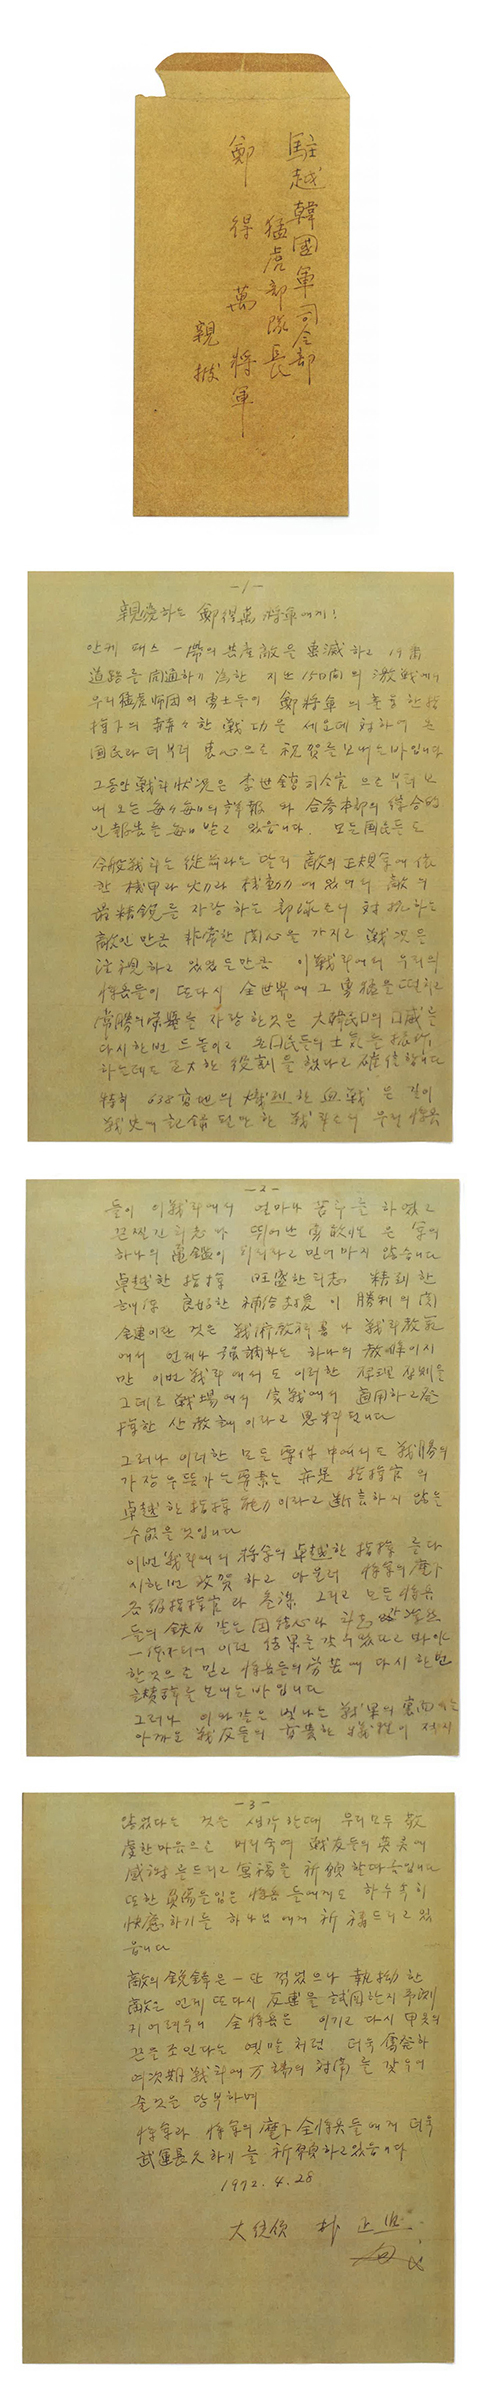 駐越韓國軍司令部
猛虎部隊長
鄭得萬 將軍
親披
-1-
親愛하는 鄭得萬 將軍에게!
안케 패스 一帶의 共産敵을 擊滅하고 19番
道路를 開通하기 爲한 지난 15日間의 激戰에서
우리 猛虎師団의 勇士들이 鄭將軍의 훌륭한 指
揮下에 赫々한 戰功을 세운데 対하여 온
国民과 더부러 衷心으로 祝賀를 보내는바입니다
그동안 戰鬪狀況은 李世鎬司令官으로부터 보
내오는 每々 每日의 詳報와 合参本部의 綜合的
인 報告를 每日 받고 있읍니다. 모든 国民들도
今般戰鬪는 從前과는 달리 敵의 正規軍에 依
한 機甲과 火力과 機動力에 있어서 敵의
最精銳를 자랑하는 部隊로서 対抗하는
敵인 만큼 非常한 関心을 가지고 戰況을
注視하고 있었든만큼 이 戰鬪에서 우리의
將兵들이 또다시 全世界에 그 勇猛을 떨치고
常勝의 榮譽를 자랑한 것은 大韓民国의 国威를
다시 한번 드높이고 온 国民들의 士気를 振作
하는데도 至大한 役割을 했다고 確信합니다
特히 638高地의 熾烈한 血戰은 길이
戰史에 記錄될만한 戰鬪로서 우리 將兵
-2-
들이 이 戰鬪에서 얼마나 苦斗를 하였고
끈질긴 鬪志와 뛰어난 勇敢性은 全軍의
하나의 龜鑑이 되리라고 믿어마지 않습니다
卓越한 指揮 旺盛한 鬪志 精到한
訓練 良好한 補給支援이 勝利의 関
鍵이란 것은 戰術敎科書나 戰鬪敎範
에서 언제나 强調하는 하나의 敎條이지
만 이번 戰鬪에서도 이러한 原理原則을
그대로 戰場에서 實戰에서 適用하고 發
揮한 산 敎訓이라고 思料됩니다
그러나 이러한 모든 要件中에서도 戰勝의
가장 으뜸가는 要素는 亦是 指揮官의
卓越한 指揮能力이라고 断言하지 않을
수 없을 것입니다
이번 戰鬪에서 將軍의 卓越한 指揮를 다
시 한번 致賀하고 아울러 將軍의 麾下
各級指揮官과 參謀 그리고 모든 將兵
들의 鉄石같은 団結心과 鬪志 渾然
一体가 되어 이런 結果를 갖어왔다고
한 것으로 믿고 將兵들의 労苦에 다시 한번
讚辞를 보내는 바입니다
그러나 이와같은 빛나는 戰果의 裏面에는
아까운 戰友들의 高貴한 犧牲이 적지
-3-
않었다는 것을 생각할때 우리 모두 敬
虔한 마음으로 머리숙여 戰友들의 英灵에
感謝를 드리고 冥福을 祈願할 따름입니다
또한 負傷을 입은 將兵들에게도 하루속히
快癒하기를 하나님에게 祈禱드리고 있
읍니다
敵의 銳鋒은 一旦 꺾었으나 執拗한
敵은 언제 또다시 反擊을 試図할지 予測
키 어려우니 全將兵은 이기고 다시 甲옷의
끈을 조인다는 옛말처럼 더욱 奮発하
여 次期戰鬪에 万端의 対備를 갖추어
줄것을 당부하며
將軍과 將軍의 麾下 全將兵들에게 더욱
武運長久하기를 祈願하고 있읍니다
1972. 4. 28
大統領 朴正熙